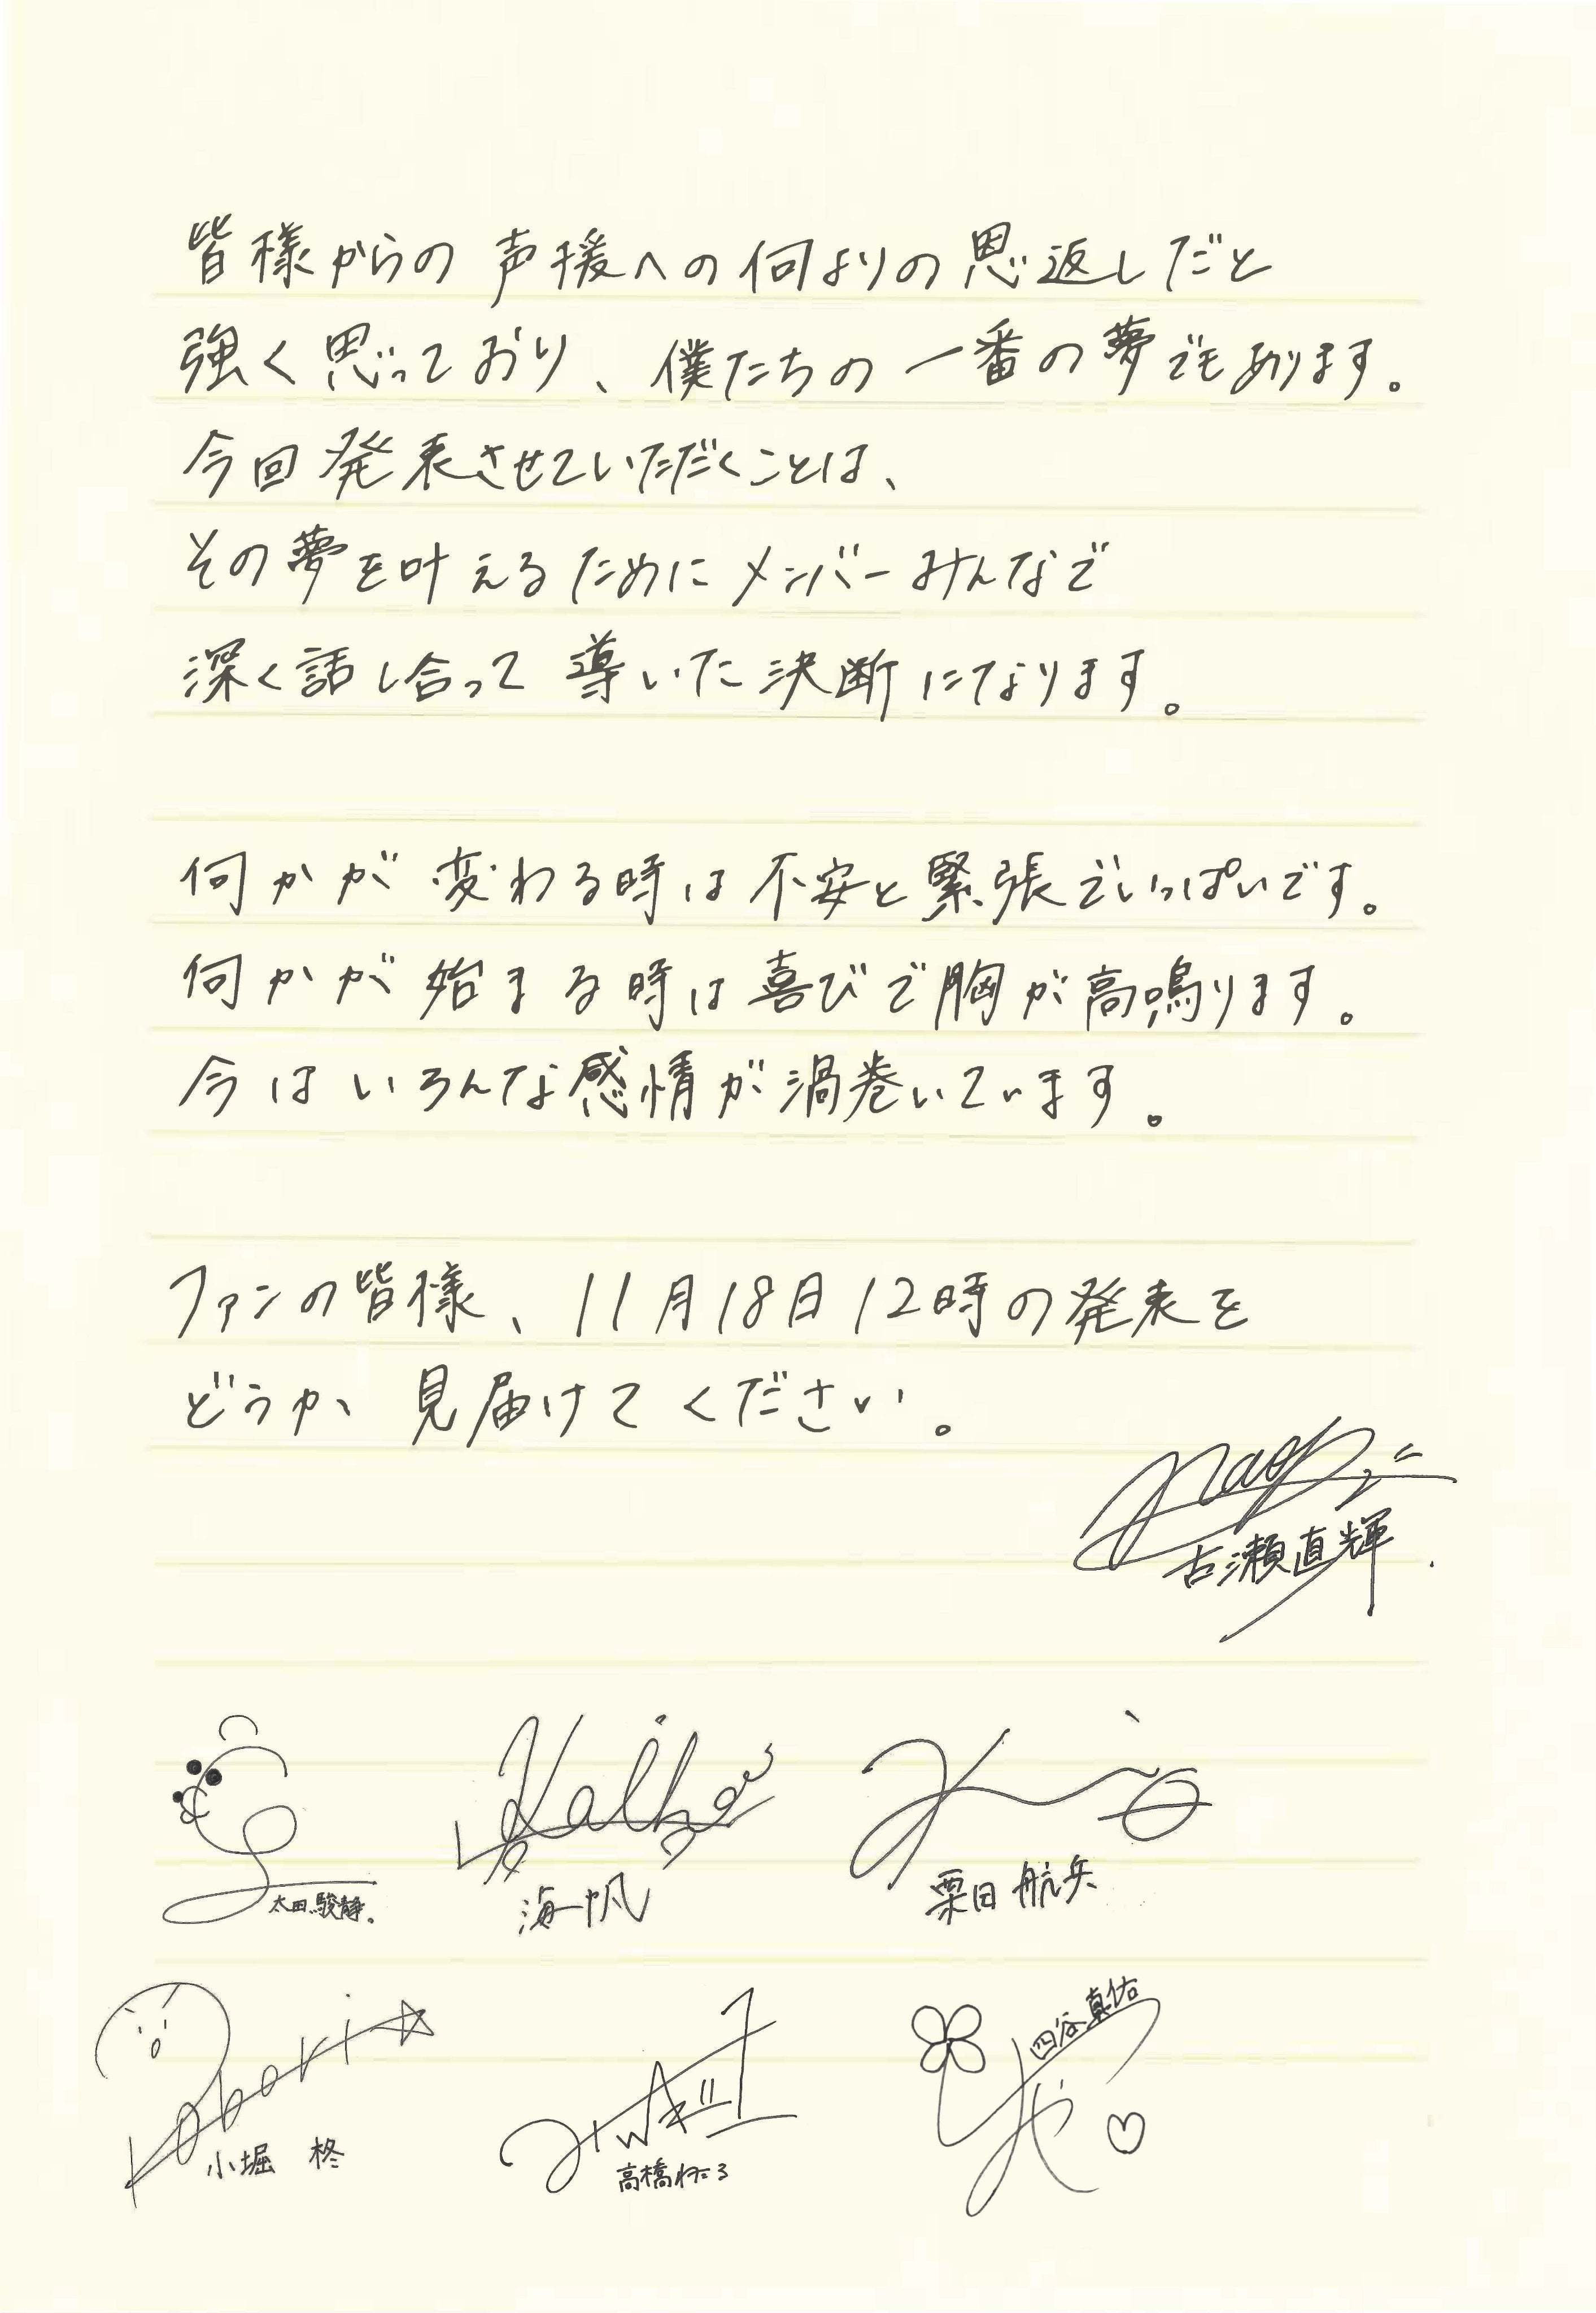 皆様からの声援への何よりの恩返しだと
強く思っており、僕たちの一番の夢でもあります。
今回発表させていただくことは、
その夢を叶えるためにメンバーみんなで
深く話し合って導いた決断になります。
何かが変わる時は不安と緊張でいっぱいです。
何かが始まる時は喜びで胸が高鳴ります。
今はいろんな感情が渦巻いています。
ファンの皆様、11月18日12時の発表を
どうか見届けてください。
古瀬直輝
太田駿静
海帆
栗田航兵
Kobori
小堀 柊
高橋わたる
四谷真佑